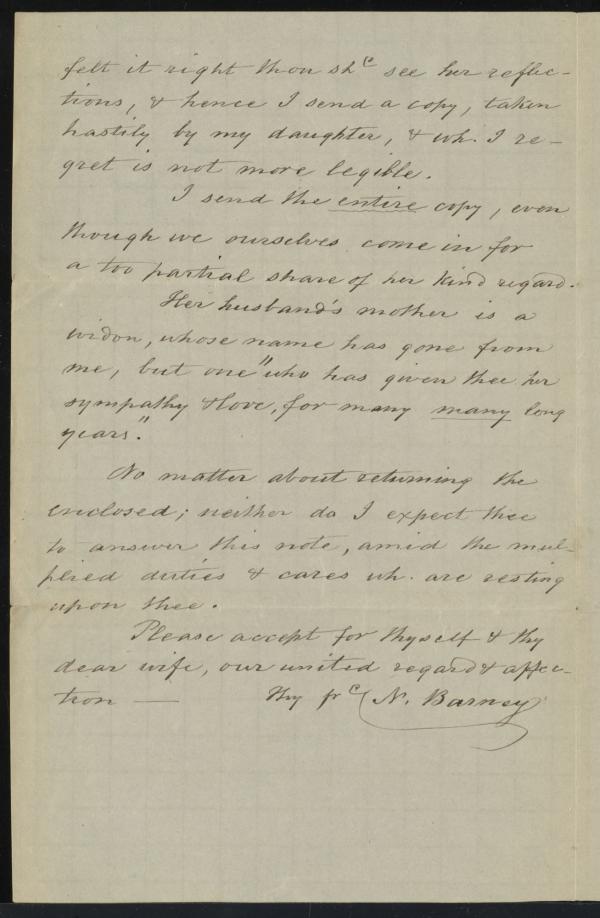 felt it right thou shd see her reflec-
tions, & hence I send a copy, taken
hastily by my daughter, & wh. I re-
gret is not more legible.
I send the entire copy, even
though we ourselves come in for
a too partial share of her kind regard.
Her husband's mother is a
widow, whose name has gone from
me, but one "who has given thee her
sympathy & love, for many many long
years."
No matter about returning the
enclosed; neither do I expect thee
to answer this note, amid the mul-
plied duties & cares wh. are resting
upon thee.
Please accept for thyself & thy
dear wife, our united regard & affec-
tion — Thy frd N. Barney